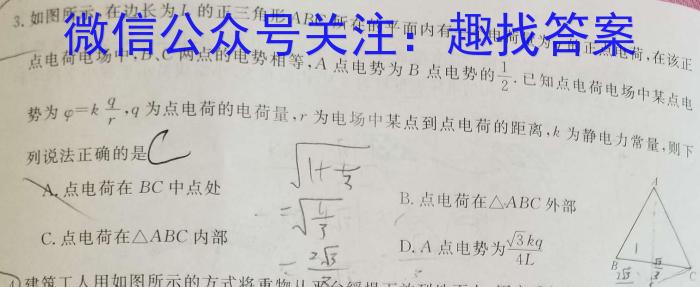 3. 如图所示,在边长为 L 的正三角形 ABC 所在的平面内有 电荷 为 的正点电荷,在该正
微信公众号关注：趣找答案
点电荷电场中,B、C 两点的电势相等,A 点电势为 B 点电势的 1/2. 已知点电荷电场中某点电
势为 φ=k q/r, q 为点电荷的电荷量,r 为电场中某点到点电荷的距离,k 为静电力常量,则下
列说法正确的是 C
A. 点电荷在 BC 中点处
B. 点电荷在△ABC 外部
C. 点电荷在△ABC 内部
D. A 点电势为 √3kq/4L
√(1+1/3)
=√(4/3)
=2√3/3
A
B
C
1
建筑工人用如图所示的方式将重物从